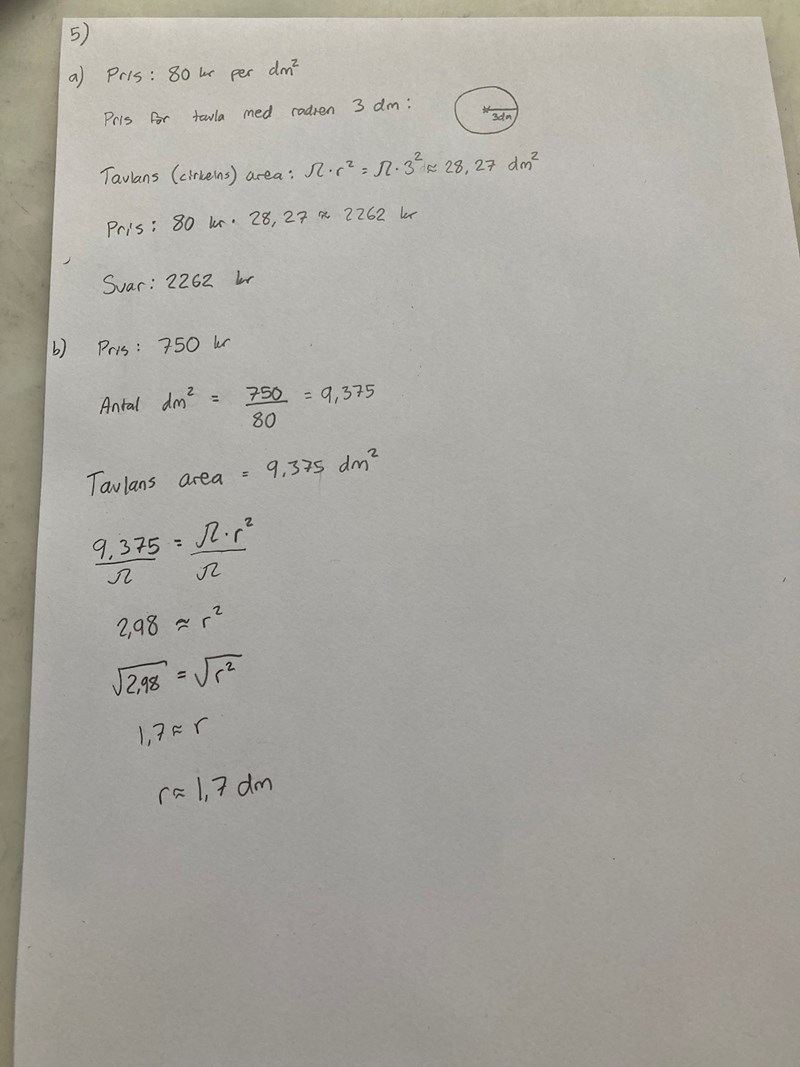 5)
a) Pris: 80 kr per dm²
Pris för tavla med radien 3 dm:
3dm
Tavlans (cirkelns) area: π·r² = π·3² ≈ 28,27 dm²
Pris: 80 kr · 28,27 ≈ 2262 kr
Svar: 2262 kr
b) Pris: 750 kr
Antal dm² = 750/80 = 9,375
Tavlans area = 9,375 dm²
9,375/π = π·r²/π
2,98 ≈ r²
√2,98 = √r²
1,7 ≈ r
r ≈ 1,7 dm